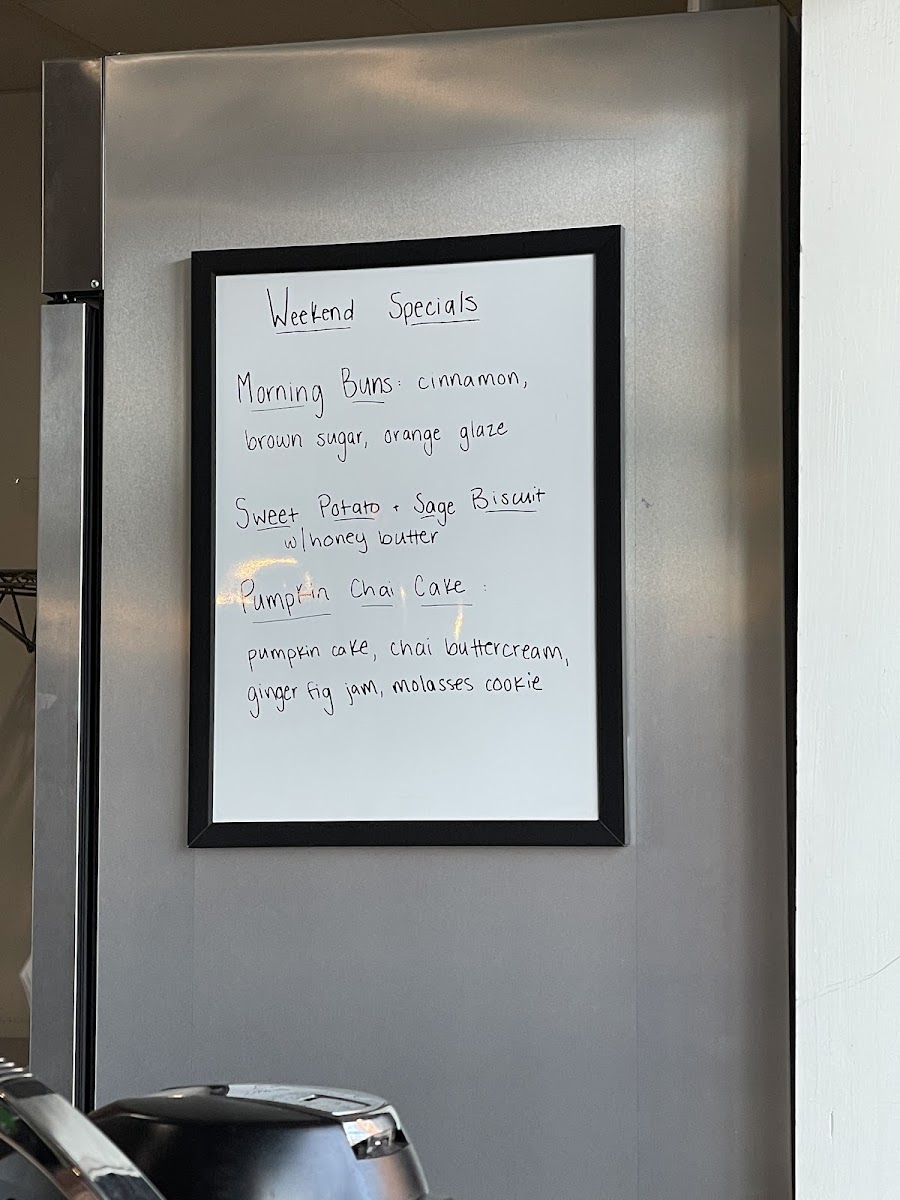 Weekend Specials
Morning Buns: cinnamon,
brown sugar, orange glaze
Sweet Potato + Sage Biscuit
w/honey butter
Pumpkin Chai Cake :
pumpkin cake, chai buttercream,
ginger fig jam, molasses cookie